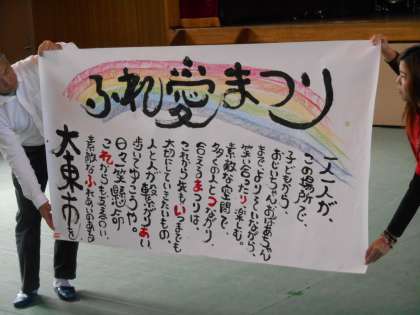 ふれ愛まつり
一人一人が、
この場所で、
子どもから、
おじいちゃんおばあちゃん
までよりそいながら、
笑い合ったり楽しむ。
素敵な空間で、
多くの人とつながり
合えるまつりは、
これから先もいつまでも
大切にしていきたいもの。
人と人が繋がりあい、
歩いてゆこうや。
日々笑顔満点の
これからも
素敵なふれあいのある
大東市を